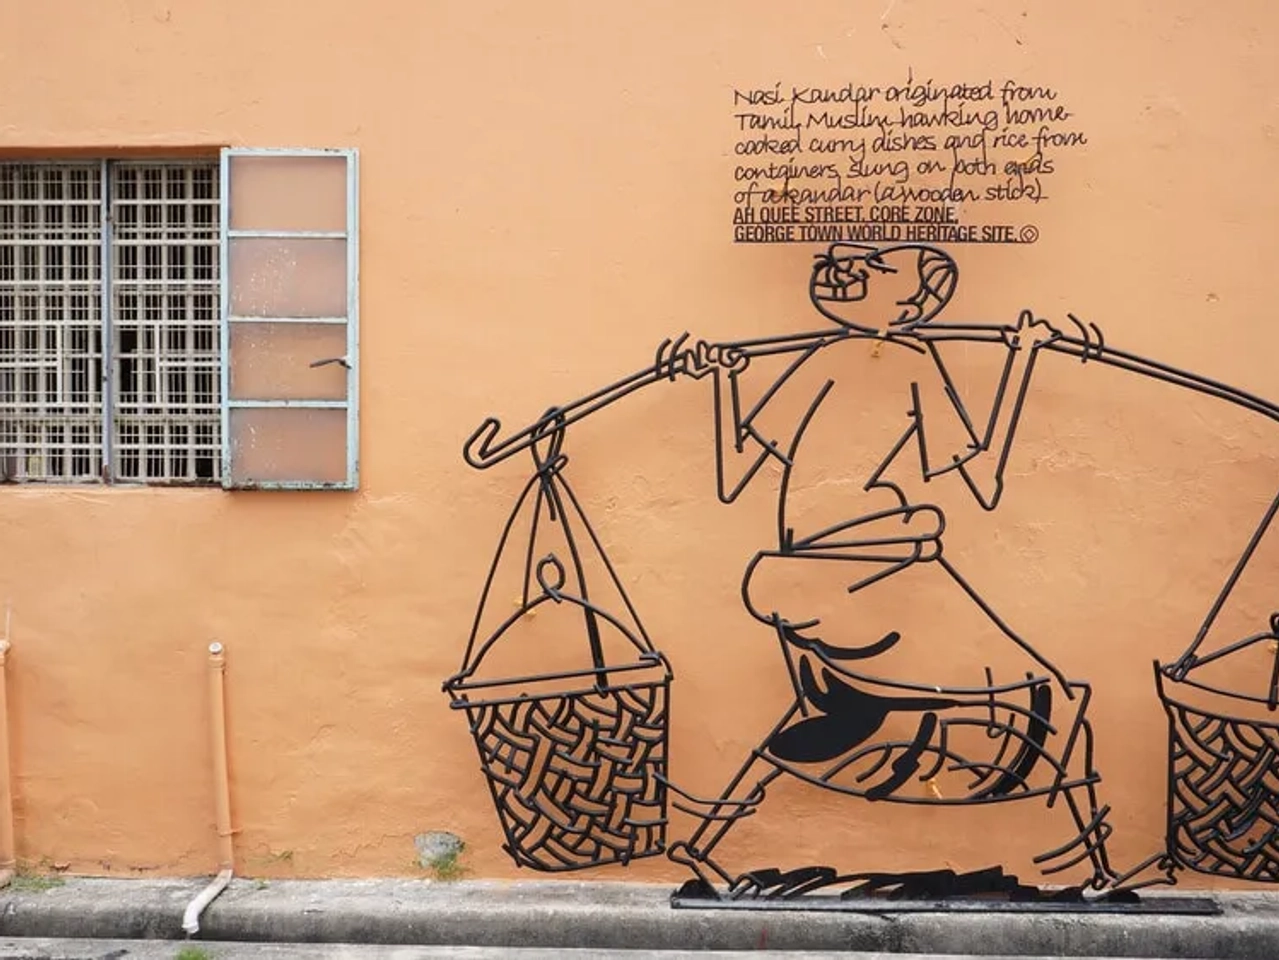 Nasi Kandar originated from
Tamil Muslim hawking home-
cooked curry dishes and rice from
containers slung on both ends
of a kandar (a wooden stick)
AH QUEE STREET, CORE ZONE,
GEORGE TOWN WORLD HERITAGE SITE.